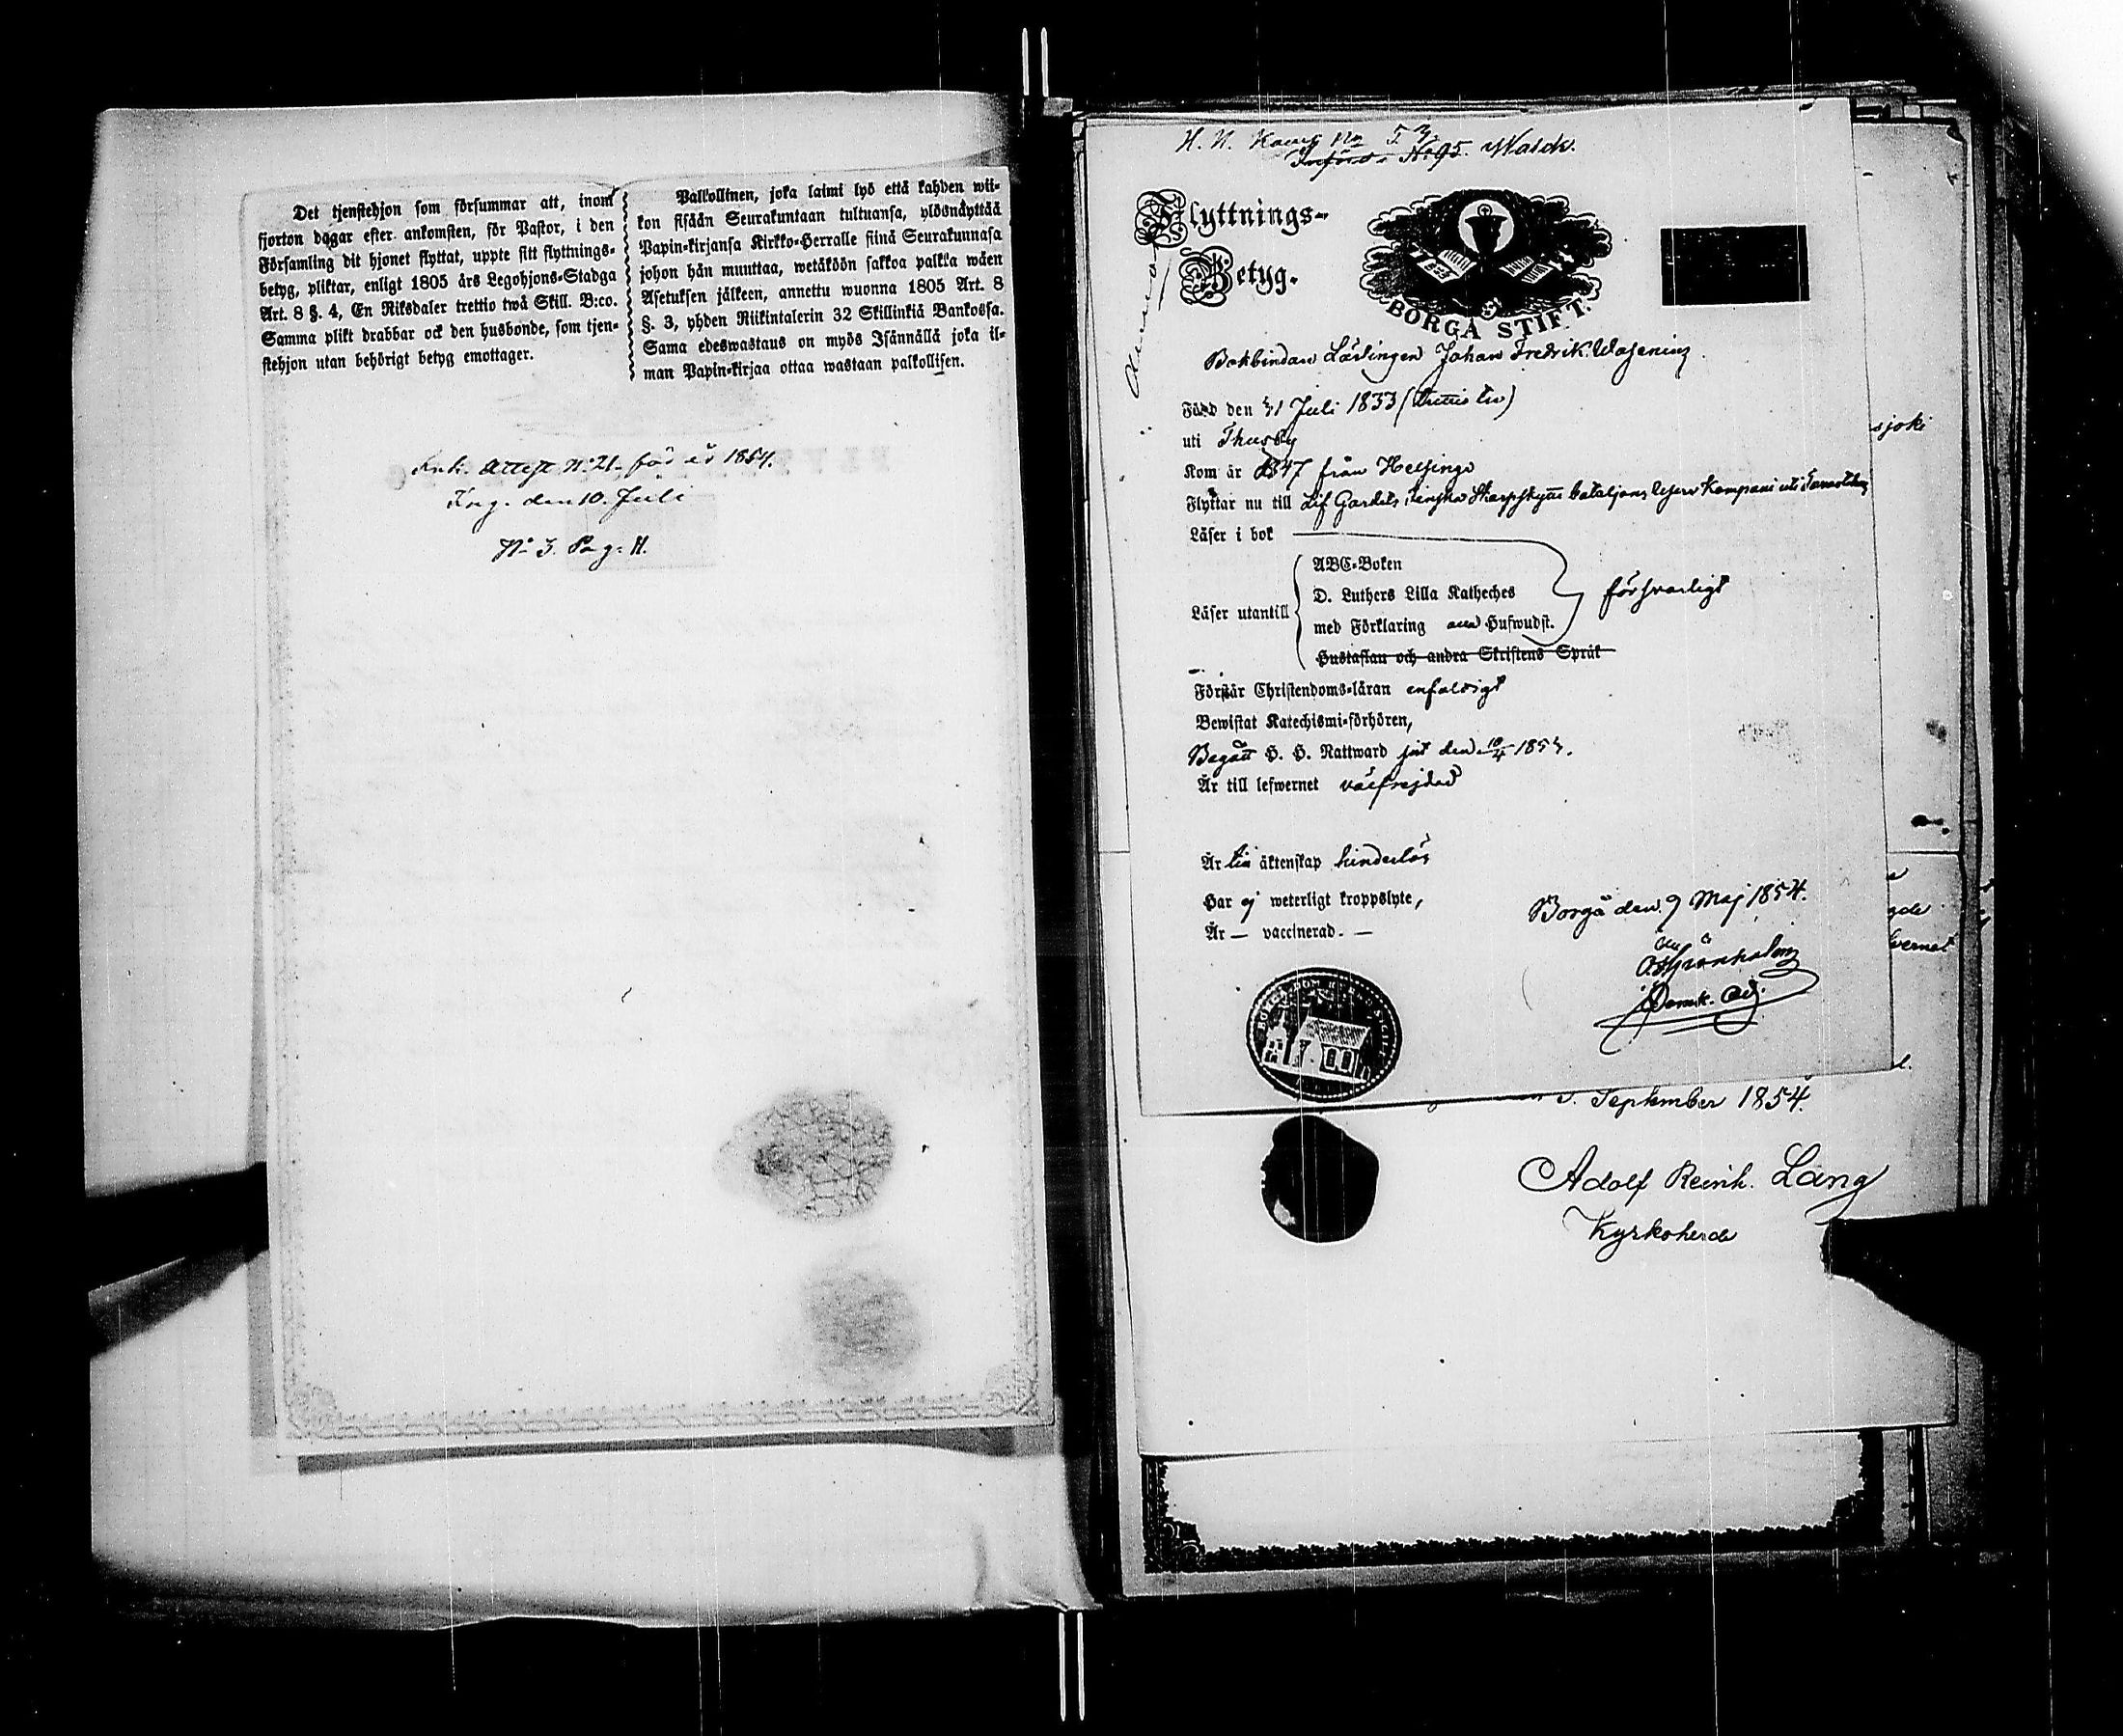 Det tjenstehjon som försummar att, inom
fjorton dagar efter ankomsten, för Pastor, i den
Församling dit hjonet flyttat, uppte sitt flyttnings-
betyg, pliktar, enligt 1805 års Legohjons-Stadga
Art. 8 §. 4, En Riksdaler trettio twå Skill. B:co.
Samma plikt drabbar ock den husbonde, som tjen-
stehjon utan behörigt betyg emottager.
Palkollinen, joka laimi lyö että kahden wii-
kon sisään Seurakuntaan tultuansa, ylösnäyttää
Papin-kirjansa Kirkko-Herralle siinä Seurakunnasa
johon hän muuttaa, wetäköön sakkoa palkka wäen
Asetuksen jälkeen, annettu wuonna 1805 Art. 8
§. 3, yhden Riikintalerin 32 Skillinkiä Bankossa.
Sama edeswastaus on myös Isännällä joka il-
man Papin-kirjaa ottaa wastaan palkollisen.
Ank. Attest N:o 21. för år 1854.
Ing. den 10. Juli
N:o 3. Pag: 11.
H. N. No 5
Införd N:o 95.
Flyttnings-
Betyg.
BORGÅ STIFT.
Bokbindare Lärlingen Johan Fredrik Wasenius
Född den 31 Juli 1833
uti Thusby
Kom år 1847 från Helsinge
Flyttar nu till Lif Gardets Finska Skarpskytte bataljons Reserv Kompani uti Tavastehus
Läser i bok
Läser utantill
ABC-Boken
D. Luthers Lilla Katheches
med Förklaring Hufwudst.
Hustaflan och andra Skriftens Språk
försvarligt
Förstår Christendoms-läran enfaldigt
Bewistat Katechismi-förhören,
Begått H. H. Nattward sist den
Är till lefwernet välfrejdad
Är till äktenskap hinderlös
Har ej weterligt kroppslyte,
Är — vaccinerad. —
Borgå den 9 Maj 1854.
Grönholm
Domk. Adj.
September 1854.
Adolf Reinh. Lang
Kyrkoherde
sjoki